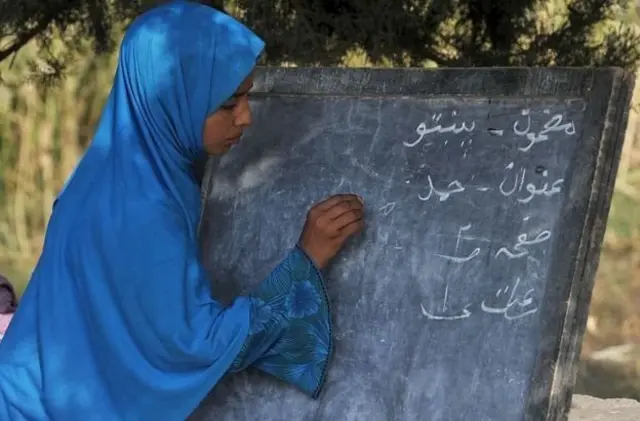 مضمون - پښتو
عنوان - حمد
صفحه